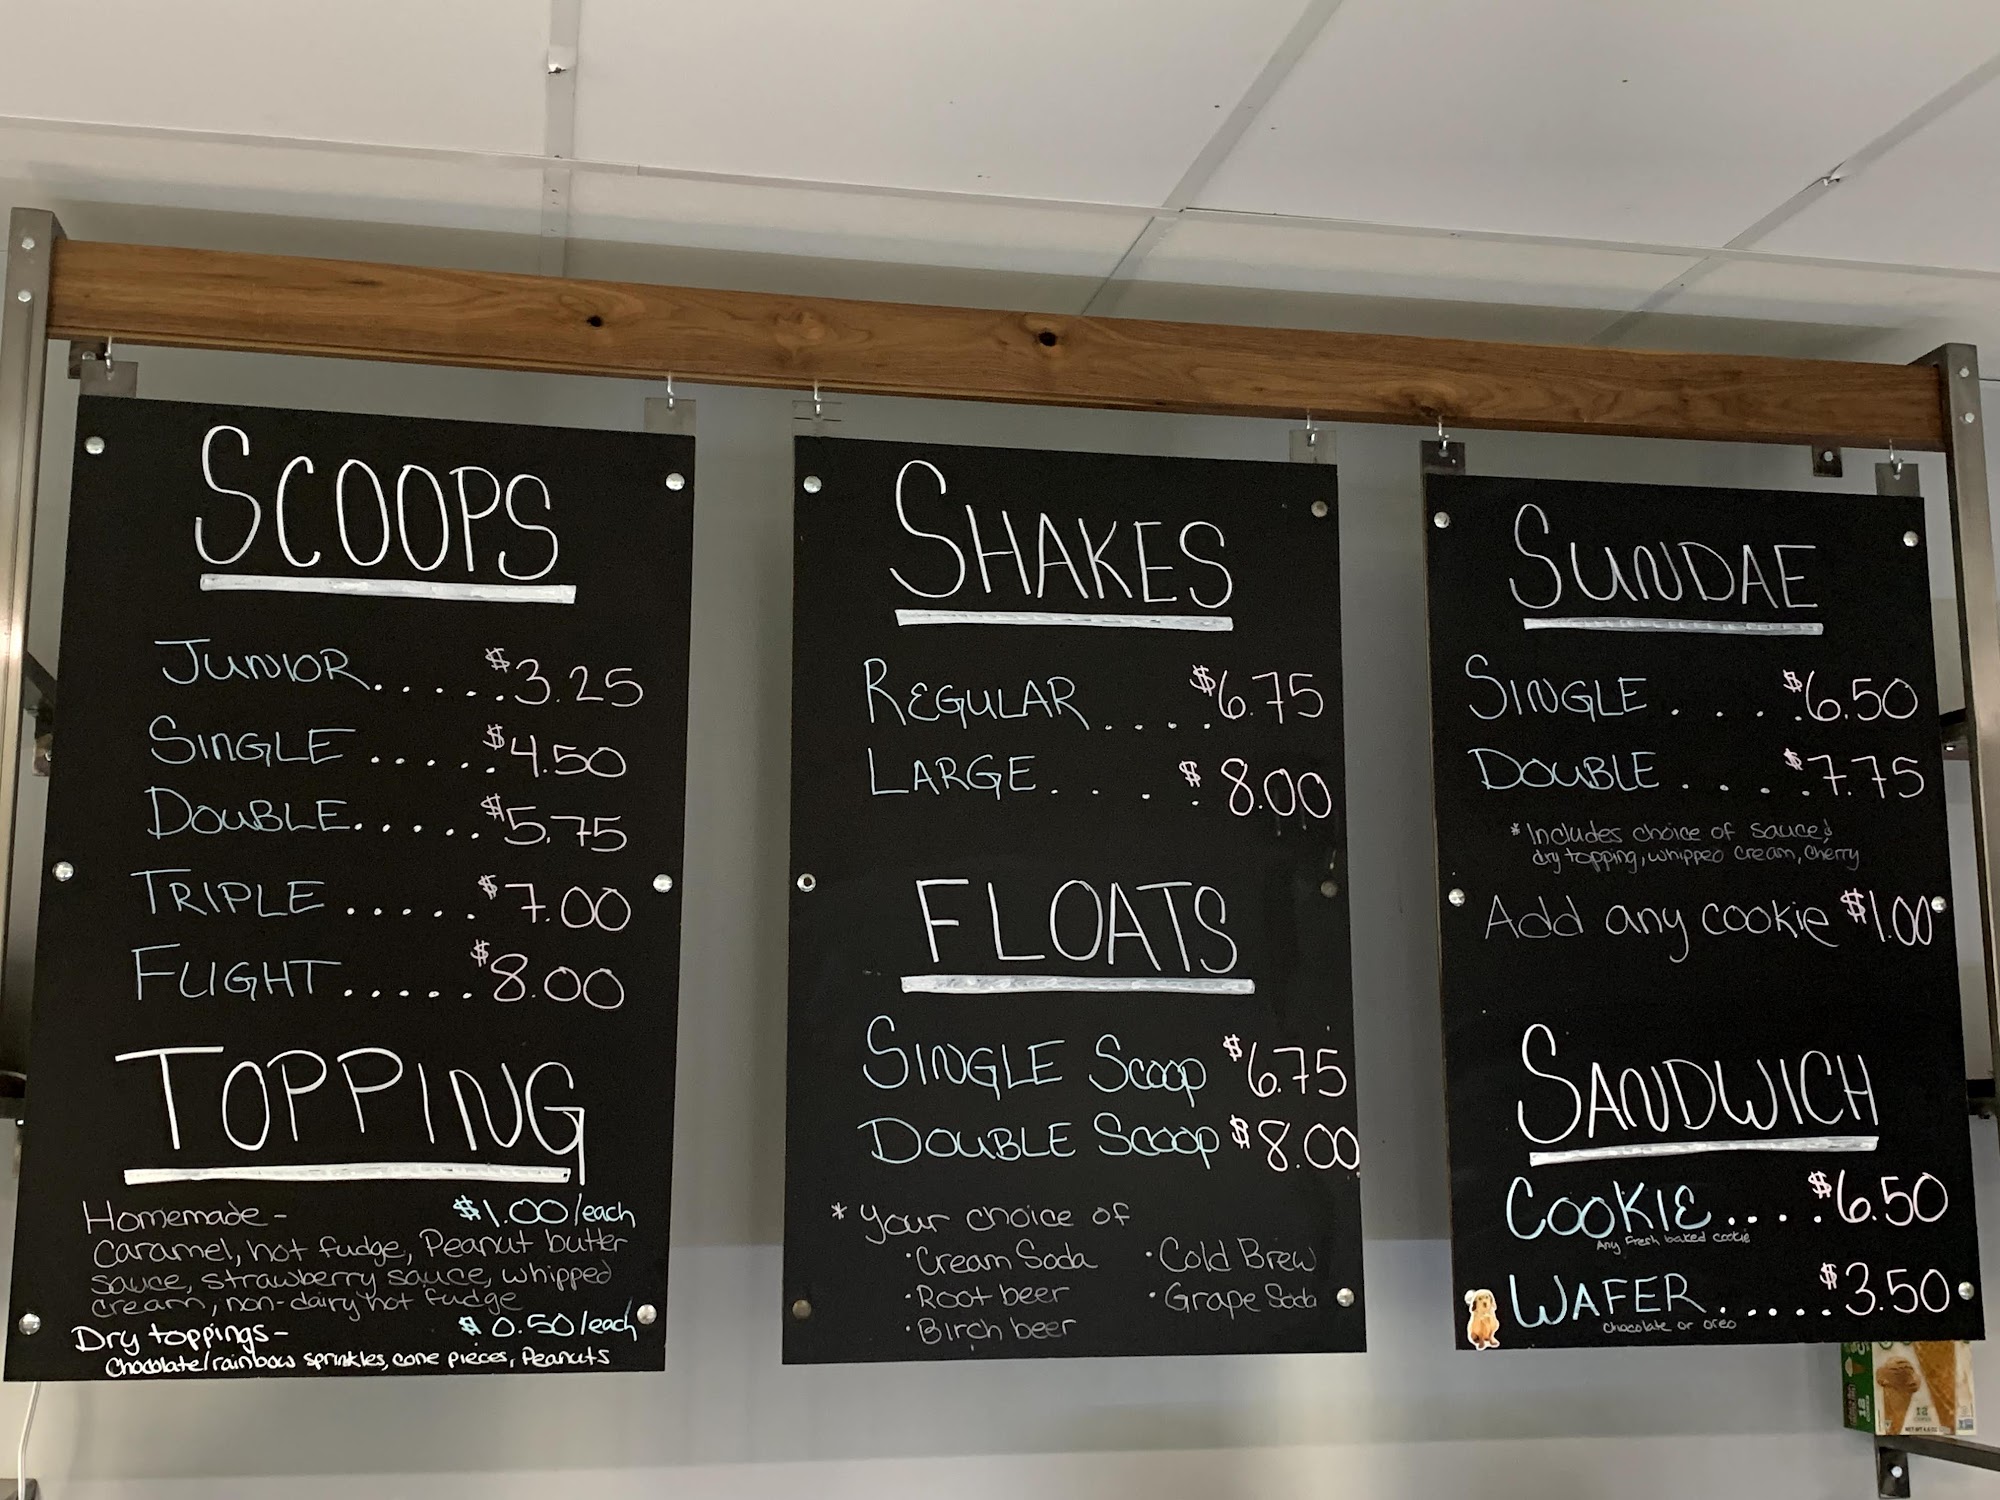 SCOOPS
JUNIOR......$3.25
SINGLE......$4.50
DOUBLE......$5.75
TRIPLE......$7.00
FLIGHT......$8.00
TOPPING
Homemade- $1.00/each
Caramel, hot fudge, Peanut butter
sauce, strawberry sauce, whipped
cream, non-dairy hot fudge
Dry toppings- $0.50/each
Chocolate/rainbow sprinkles, cone pieces, Peanuts
SHAKES
REGULAR....$6.75
LARGE....$8.00
FLOATS
SINGLE Scoop $6.75
DOUBLE Scoop $8.00
* Your choice of
• Cream Soda • Cold Brew
• Root beer • Grape Soda
• Birch beer
SUNDAE
SINGLE.....$6.50
DOUBLE.....$7.75
* Includes choice of sauce &
dry topping, whipped cream, cherry
Add any cookie $1.00
SANDWICH
COOKIE.....$6.50
Any Fresh baked cookie
WAFER......$3.50
chocolate or oreo
12